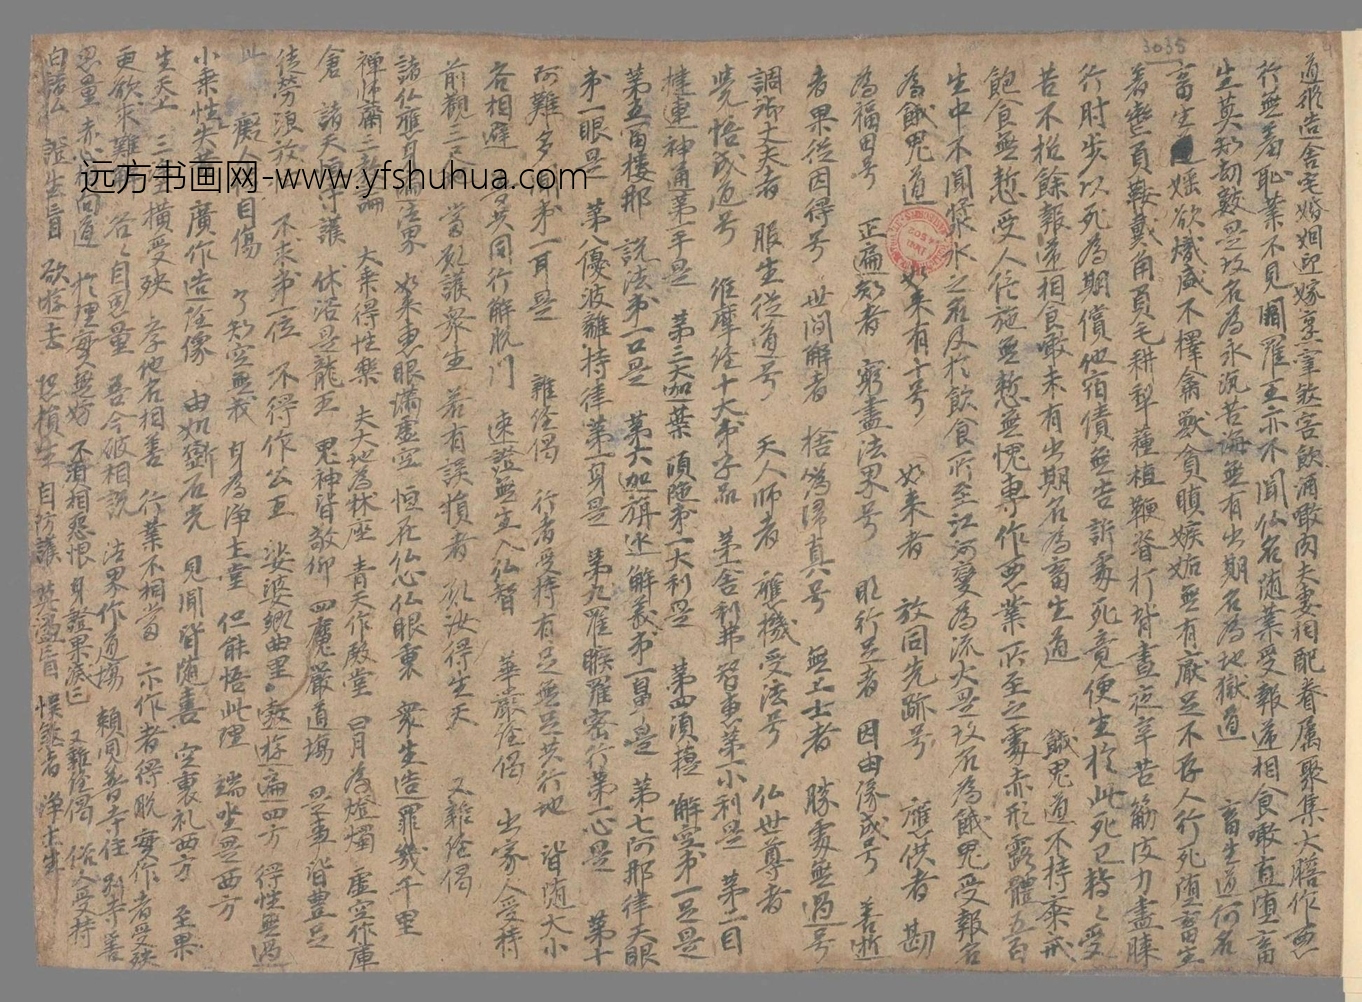 3035
道形造舍宅婚姻迎嫁烹宰煞害飲酒噉肉夫妻相配眷属聚集大膳作惡
行無羞恥業不見閻羅王亦不聞仏名随業受報遞相食噉直堕畜
生莫知劫數是故名為永沉苦海無有出期名為地獄道 畜生道何名
畜生 婬欲熾盛不擇禽獸貪瞋嫉妬無有厭足不存人行死堕畜生
著轡負鞍戴角負毛耕犁種植鞭脊打背晝夜辛苦筋皮力盡
行肘步以死為期償他宿債無告訴處死竟便生於此死已将〻受
苦不松餘報遞相食噉未有出期名為畜生道 餓鬼道不持齋戒
飽食無慙受人信施無慙無愧專作惡業所至之處赤形露體五百
生中不聞漿水之名及於飲食所至江河變為流火是故名為餓鬼受報名
為餓鬼道 如来有十号 如来者 放同先跡号 應供者 勘
為福田号 正遍知者 窮盡法界号 明行足者 因由緣成号 善逝
者果從因得号 世間解者 捨偽歸真号 無上士者 勝處無過号
調御丈夫者 服生從道号 天人師者 應機受法号 仏世尊者
覺悟成道号 維摩経十大弟子品 第舍利弗智惠第一小利是 第二目
揵連神通第一手是 第三大加葉頭陁第一大利是 第四須菩 解空第一足是
第五富樓那 説法第一口是 第六迦旃延解義第一鼻是 第七阿那律天眼
第一眼是 第八優波離持律第一身是 第九羅睺羅密行第一心是 第十
阿難多聞第一耳是 雜経偈 行者受持有足無足共行地 皆随大小
各相避 共同行解脱門 速證無生入仏智 華嚴経偈 出家人受持
前觀三尺 當願護衆生 若有誤損者 願汝得生天 又雜経偈
諸仏應身遍法界 如来惠眼滿虚空 恒在仏心仏眼裏 衆生造罪幾千里
禪師蕭二教論 大乘得性樂 夫大地為牀座 青天作殿堂 日月為燈燭 虚空作庫
倉 諸天恒守護 休浴是龍王 鬼神皆敬仰 四魔嚴道場 皆豊足
徒劳浪放 不求第一位 不得作公王 娑婆鄉曲里 敖遊遍四方 得性無過
此 癡人自傷 了知空無我 身為淨土堂 但能悟此理 端坐是西方
小乘性失 廣作造経像 由如斷石光 見聞皆随喜 空裏礼西方 至果
生天上 三 横受殃 李他名相善 行業不相當 亦作者得脱 每作者受殃
更欲求難 各〻自思量 吾今破相説 法界作道場 頼聞普寺住 善
思量 赤心向道 於理實無妨 不須相惡恨 身證果 又雜経偈 俗人受持
白諸仏 證生盲 欲遊去 恐損生 自防護 莫 盲 悮煞者 淨土生
远方书画网-www.yfshuhua.com